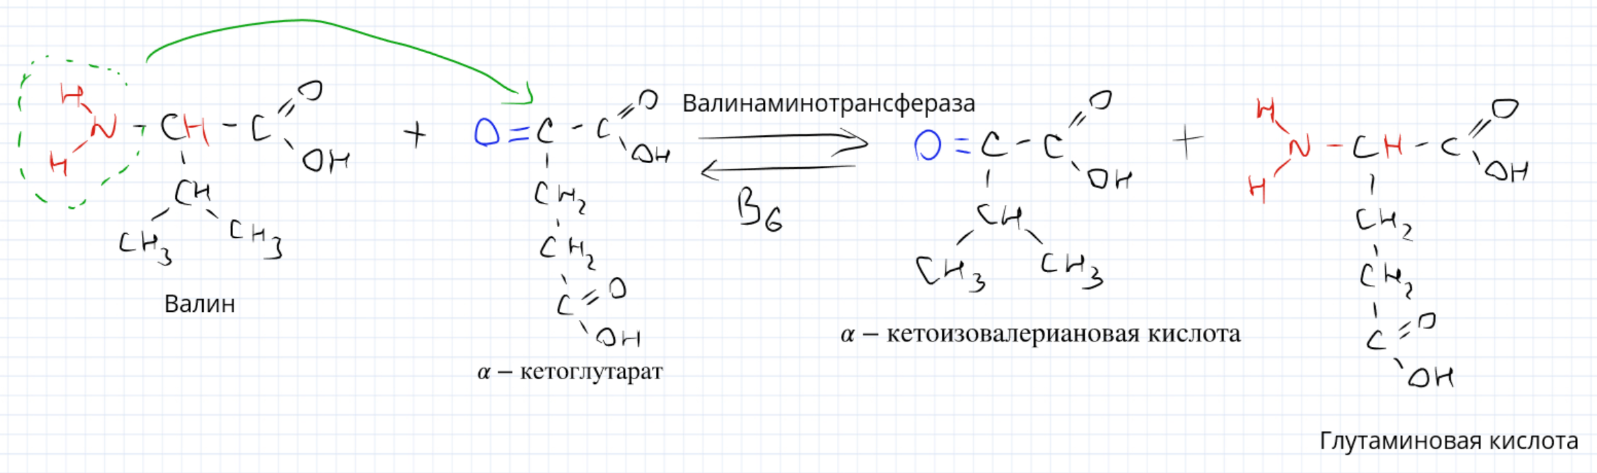 H
N - CH - C
O
OH
H
CH
CH3
CH3
Валин
+
O = C - C
O
OH
CH2
CH2
C = O
OH
α − кетоглутарат
Валинаминотрансфераза
B6
O = C - C
O
OH
CH
CH3
CH3
α − кетоизовалериановая кислота
+
H
N - CH - C
O
OH
H
CH2
CH2
C = O
OH
Глутаминовая кислота